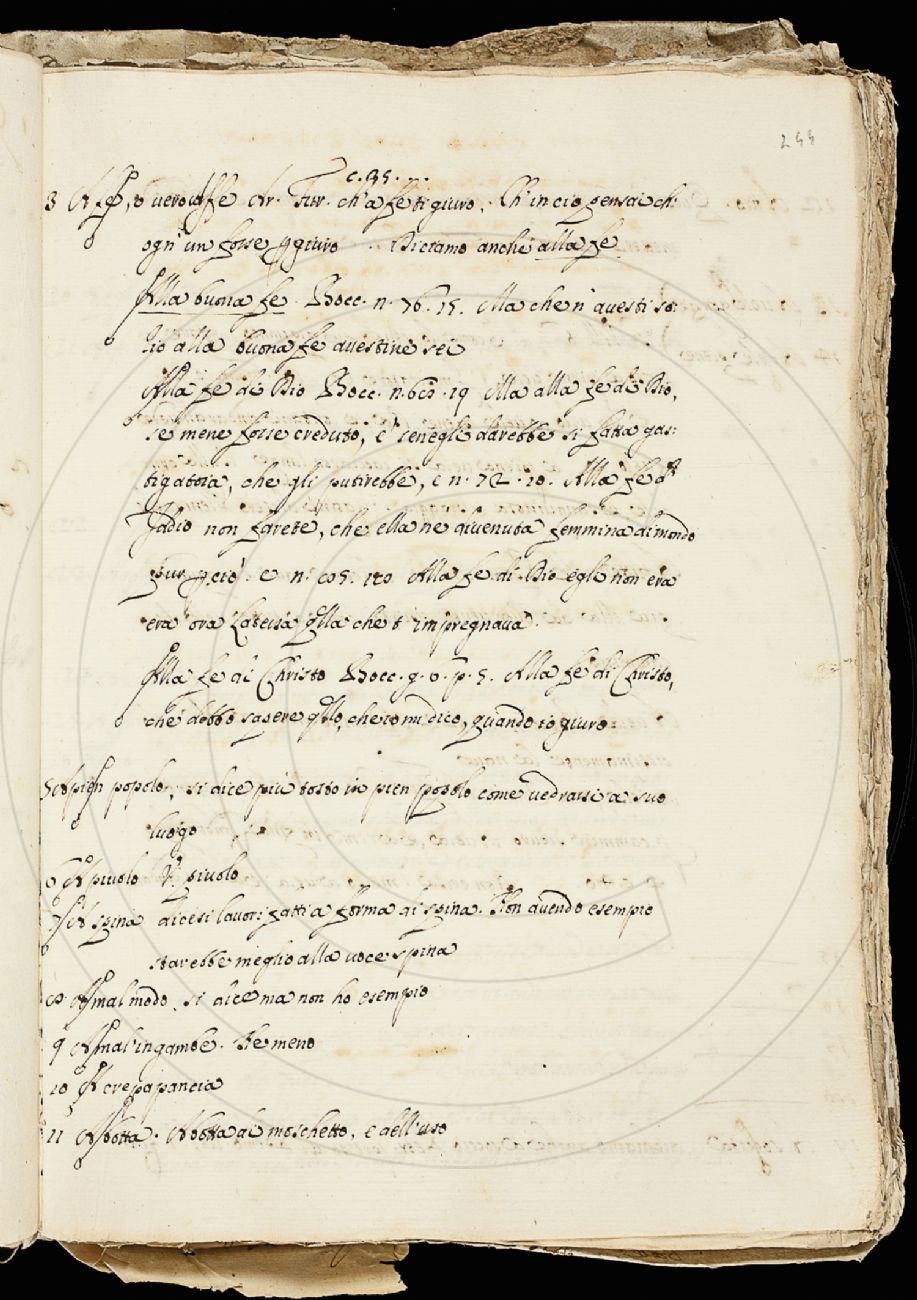 244
c. 35. . .
3 A fe, o vero affe Ar. Fur. ch'a fe ti giuro, Ch' in ciò pensai ch'
ogn' un fosse pgiuro . Diciamo anche alla fe
Alla buona fe. Bocc. n. 76. 15. Ma che n' avesti so:
zio alla buona fe avestine sei
Alla fe di Dio Bocc. n. 68. 19 Ma alla fe di Dio,
se me ne fosse creduto, e' se negli darebbe si fatta gas:
tigatoia, che gli putirebbe, e n. 72. 10. Alla fe d'
Iddio non farete, che ella ne divenuta femmina di mondo
pur p ciò. e n. 85. 20 Alla fe di Dio egli non era
era ora la terza qlla che t' impregnava.
Alla fe di Christo Bocc. g. 6. p. 5. Alla fe di Christo,
che debbo sapere qllo, che io mi dico, quando io giuro
5 A pien popolo, si dice più tosto in pien popolo come vedrassi a suo
luogo
6 A piuolo V. piuolo
7 A spina dicesi lavori fatti a forma di spina. Non avendo esempio
starebbe meglio alla voce spina
8 A mal modo, si dice ma non ho esempio
9 A mal' in gambe. Ne meno
10 A crepapancia
11 A botta. A botta di moschetto, e dell'uso